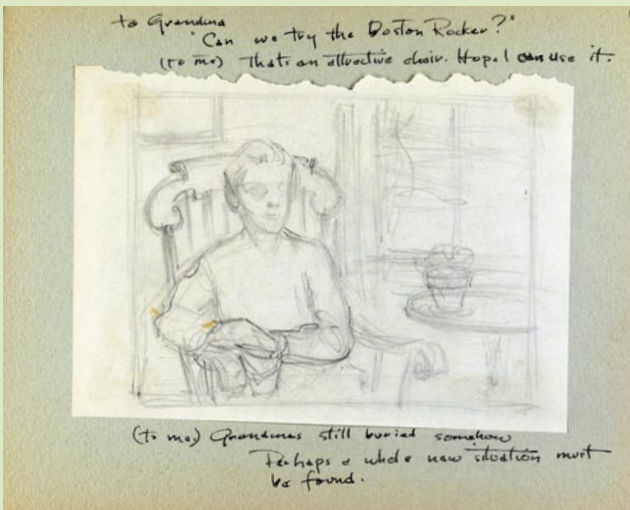 to Grandma
"Can we try the Boston Rocker?"
(to me) That's an attractive chair. Hope I can use it.
(to me) Grandma's still buried somehow
Perhaps a whole new situation must
be found.